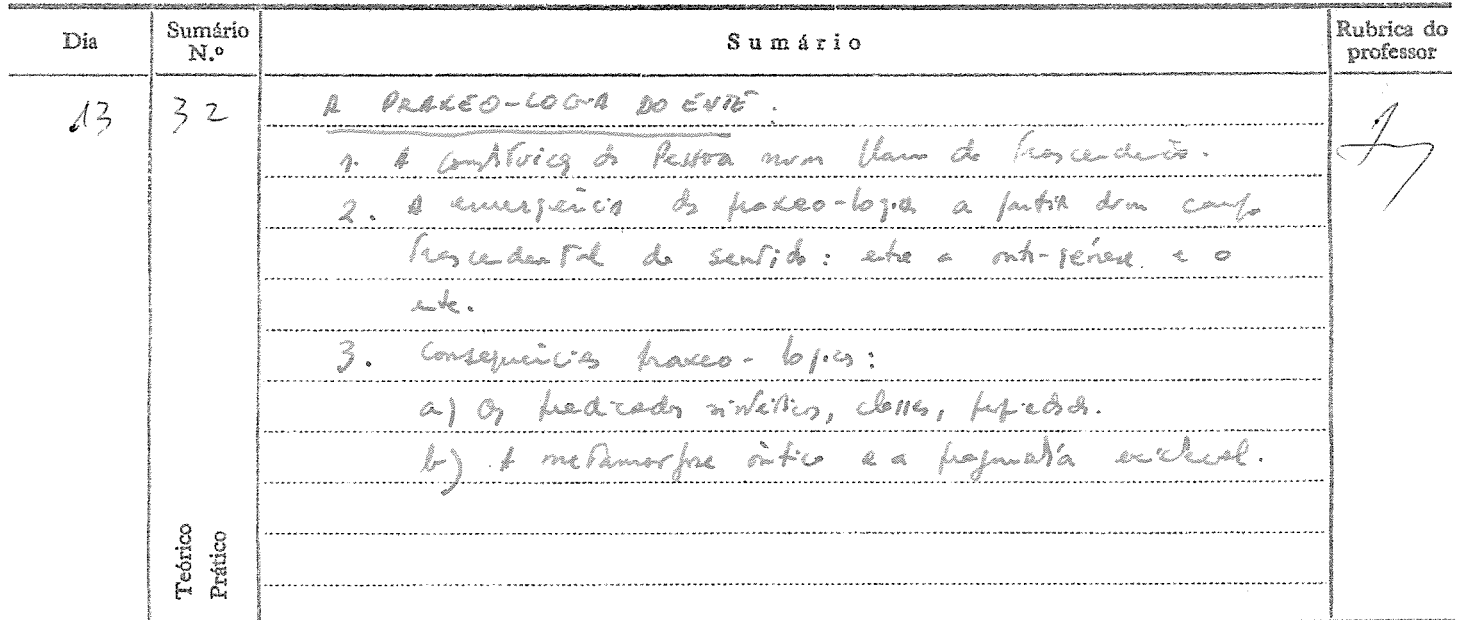 Dia
Sumário N.º
Sumário
Rubrica do professor
13
32
A PRAXEO-LOGIA DO ENTE.
1. A constituição da Pessoa num Plano de Trascendência.
2. A emergência da praxeo-logia a partir dum campo
trascendental de sentido: entre a onto-génese e o
ente.
3. Consequências praxeo-lógicas:
a) Os predicados sintéticos, classes, propriedades.
b) A metamorfose ôntica e a pragmatía
Teórico
Prático